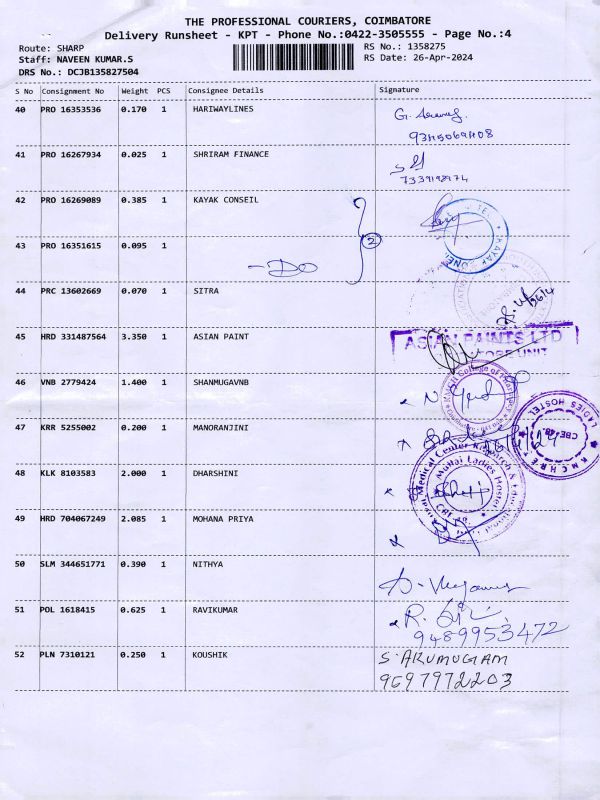 THE PROFESSIONAL COURIERS, COIMBATORE
Delivery Runsheet - KPT - Phone No.:0422-3505555 - Page No.:4
Route: SHARP
Staff: NAVEEN KUMAR.S
DRS No.: DCJB135827504
RS No.: 1358275
RS Date: 26-Apr-2024
S No Consignment No Weight PCS Consignee Details Signature
40 PRO 16353536 0.170 1 HARIWAYLINES
41 PRO 16267934 0.025 1 SHRIRAM FINANCE
42 PRO 16269089 0.385 1 KAYAK CONSEIL
43 PRO 16351615 0.095 1
-Do
2
44 PRC 13602669 0.070 1 SITRA
45 HRD 331487564 3.350 1 ASIAN PAINT
ASIAN PAINTS LTD
46 VNB 2779424 1.400 1 SHANMUGAVNB
LADIES HOSTEL
CBE-48
47 KRR 5255002 0.200 1 MANORANJINI
48 KLK 8103583 2.000 1 DHARSHINI
49 HRD 704067249 2.085 1 MOHANA PRIYA
50 SLM 344651771 0.390 1 NITHYA
51 POL 1618415 0.625 1 RAVIKUMAR
9489953472
52 PLN 7310121 0.250 1 KOUSHIK
S. ARUMUGAM
9697972203